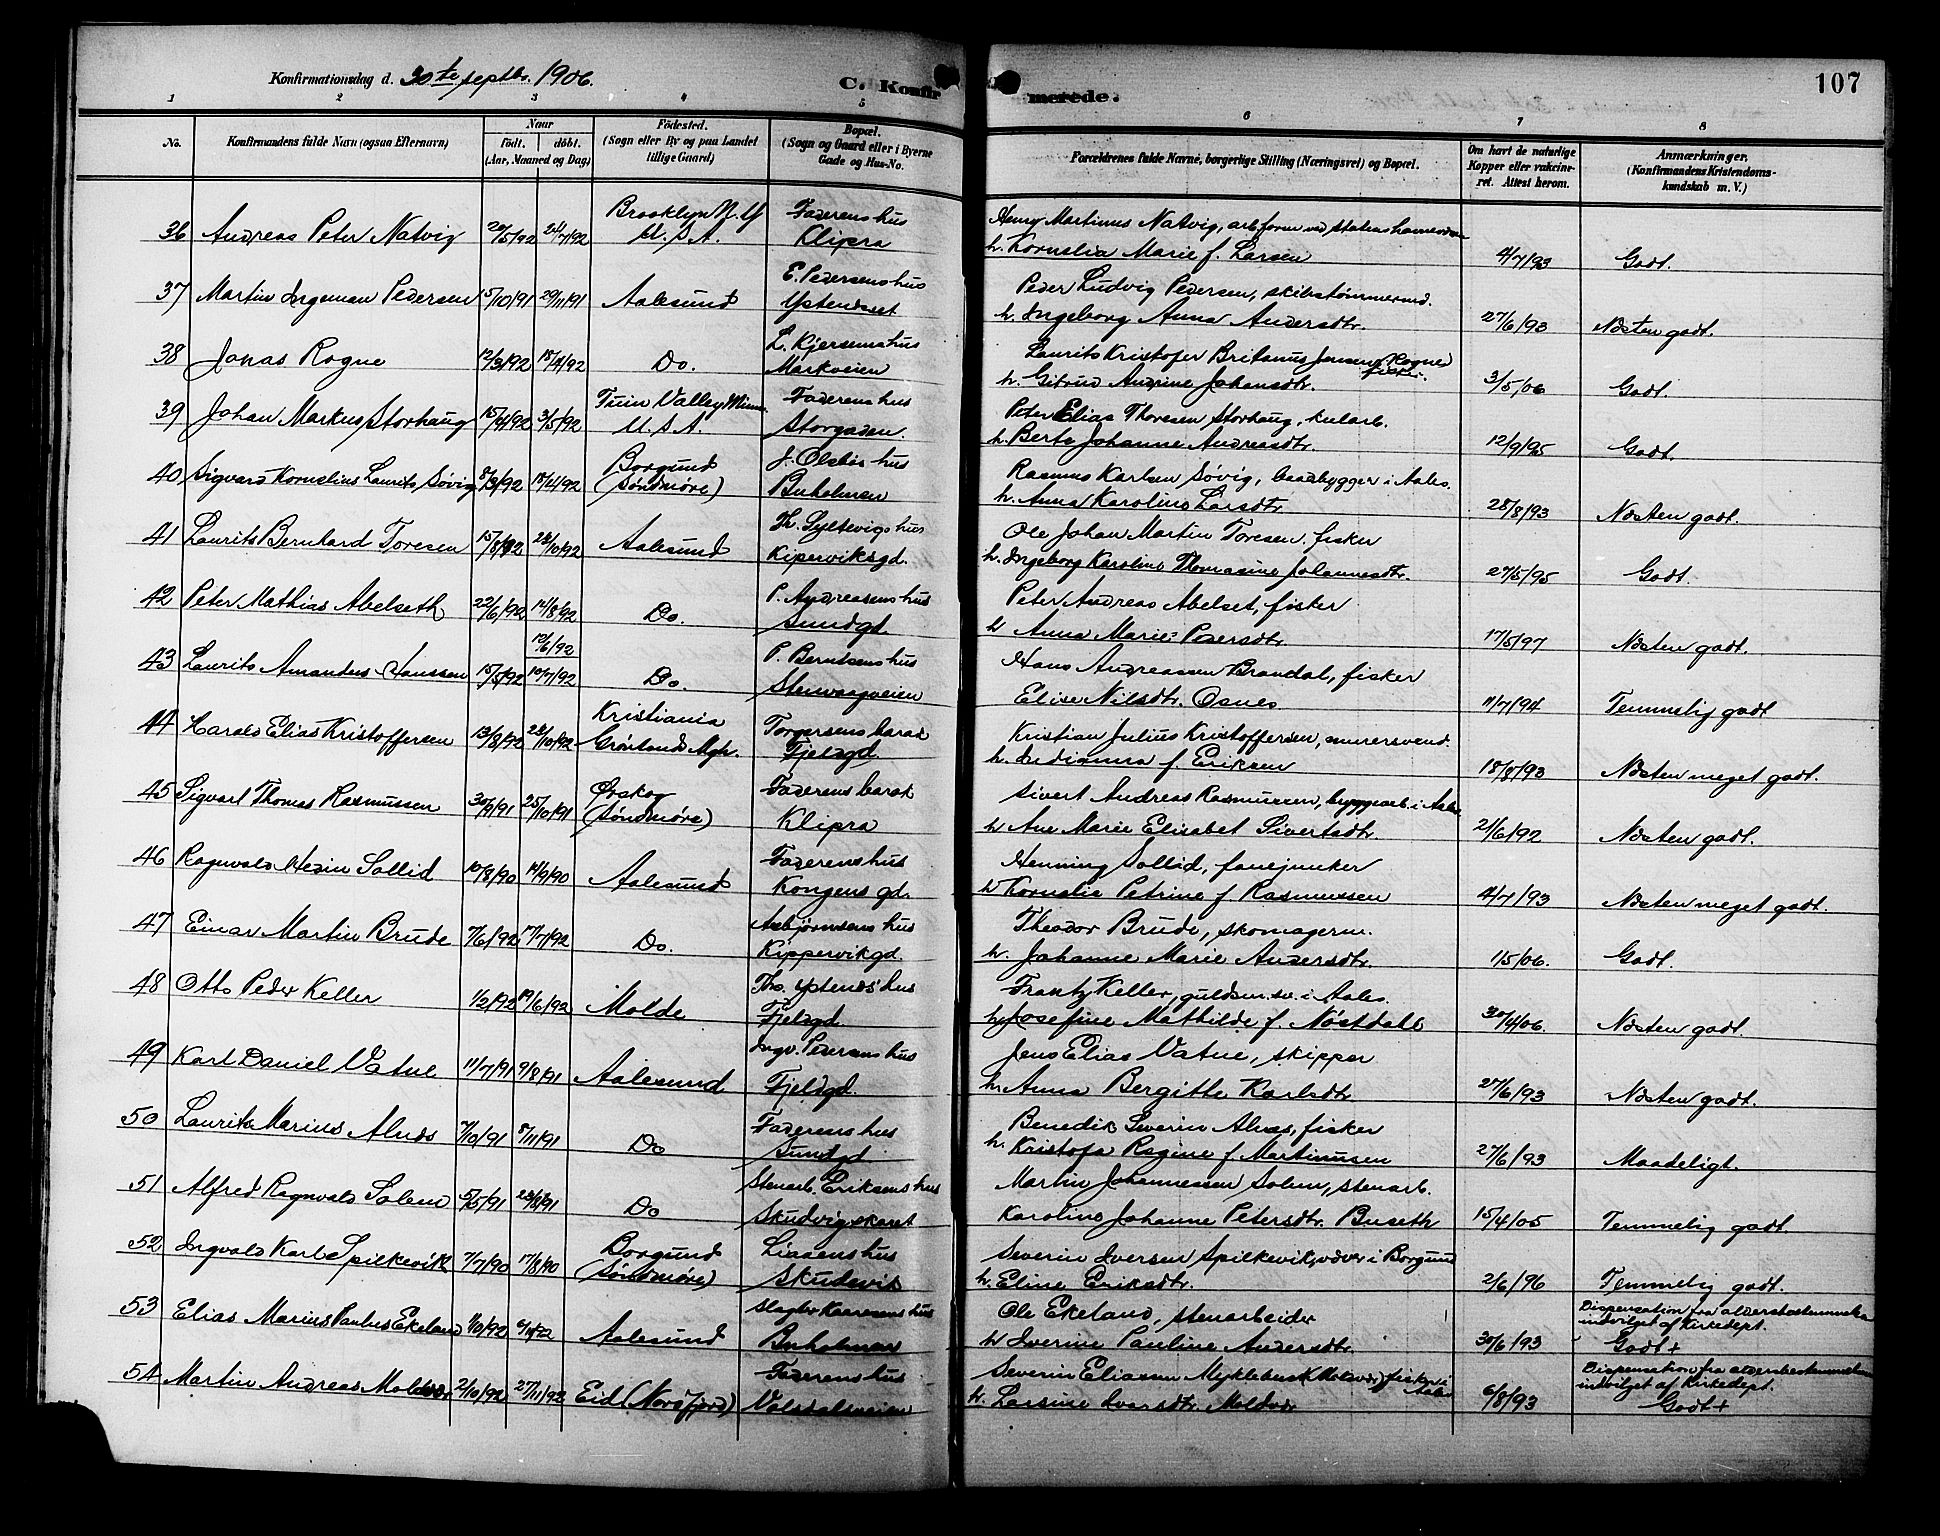 Konfirmationsdag d. 30te septbr. 1906.
C. Konfirmerede.
107
1 2 3 4 5 6 7 8
No.
Konfirmandens fulde Navn (ogsaa Efternavn)
Naar
født. døbt.
(Aar, Maaned og Dag)
Fødested.
(Sogn eller By og paa Landet
tillige Gaard)
Bopæl.
(Sogn og Gaard eller i Byerne
Gade og Hus-No.
Forældrenes fulde Navne, borgerlige Stilling (Næringsvei) og Bopæl.
Om havt de naturlige
Kopper eller vakcine-
ret. Attest herom.
Anmærkninger.
(Konfirmandens Kristendoms-
kundskab m. V.)
Brooklyn N. Y. Faderens hus Henry Martinus Natvig, arb.form ved statens
36 Andreas Peter Natvig 20/5/92 24/7/92 U. S. A. Klipra h. Kornelia Marie f. Larsen 4/7/93 Godt.
E. Pedersens hus Peder Ludvig Pedersen, skibstømmermd.
37 Martin Ingeman Pedersen 5/10/91 29/11/91 Aalesund Ystenæset h. Ingeborg Anna Andersdtr. 27/6/93 Næsten godt.
L. Kjersems hus Laurits Kristofer Britanus Jensen Rogne fisker.
38 Jonas Rogne 12/3/92 18/4/92 Do. Markveien h. Gitrud Andrine Johansdtr. 3/5/06 Godt.
Valley Minn. Faderens hus Peter Elias Thoresen Storhaug, kularb.
39 Johan Markus Storhaug 15/4/92 3/5/92 U. S. A. Storgaden. h. Berte Johanne Andersdtr. 12/9/95 Godt.
Borgund J. Olsbøs hus Rasmus Karlsen Søvig, baadbygger i Aales.
40 Sigvard Kornelius Laurits Søvig 8/3/92 18/4/92 (Søndmøre) Buholmen h. Anna Karoline Larsdtr. 28/8/93 Næsten godt.
Th. Syltevigs hus Ole Johan Martin Toresen, fisker
41 Laurits Bernhard Toresen 15/8/92 23/10/92 Aalesund Kiperviksgd. h. Ingeborg Karoline Thomasine Johannesdtr. 27/5/95 Godt
P. Andreasens hus Peter Andreas Abelset, fisker
42 Peter Mathias Abelseth 22/6/92 14/8/92 Do. Sundgd. h Anna Marie Pedersdtr. 17/5/97 Næsten godt.
12/6/92 P. Berntsens hus Hans Andreassen Brandal, fisker
43 Laurits Amandus Hanssen 15/5/92 10/7/92 Do. Stenvaagveien Elise Nilsdtr. Osnes 11/7/94 Temmelig godt
Kristiania Torgersens barak Kristian Julius Kristoffersen, murersvend.
44 Harald Elias Kristoffersen 13/8/92 23/10/92 Grønlands Mgh. Fjeldgd. h. Indianna f. Eriksen 18/8/93 Næsten meget godt.
Ørskog Faderens barak Sivert Andreas Rasmussen, byggearb. i Aales.
45 Sigvart Thomas Rasmussen 30/9/91 25/10/91 (Søndmøre) Klipra h Ane Marie Elisabet Sivertsdtr. 21/6/92 Næsten godt.
Faderens hus Henning Sollid, fanejunker
46 Ragnvald Sollid 10/8/90 14/9/90 Aalesund Kongens gd. h Kornelie Petrine f Rasmussen 4/7/93 Næsten meget godt.
Asbjørnsens hus Theodor Brude, skomagerm.
47 Einar Martin Brude 7/6/92 17/7/92 Do. Kippervikgd. h. Johanne Marie Andersdtr. 1/5/06. Godt.
Ths. Ystenes' hus Frantz Keller, guldsm.sv. i Aales.
48 Otto Peder Keller 1/2/92 19/6/92 Molde Fjeldgd. h. Josefine Mathilde f. Nøstdahl 30/4/06. Næsten godt.
Ingv. Pedersens hus Jens Elias Vatne, skipper
49 Karl Daniel Vatne 11/7/91 9/8/91 Aalesund Fjeldgd. h. Anna Bergitte Karlsdtr 27/6/93 Næsten godt.
Faderens hus Benedik Severin Alnæs, fisker
50 Laurits Marius Alnæs 7/10/91 8/11/91 Do Sundgd h. Kristofa Regine f Martinusen 27/6/93 Maadeligt.
Stenarb. Eriksens hus Martin Johannessen Solem, stenarb.
51 Alfred Ragnvald Solem 5/5/91 23/8/91 Do Skudvigskaret Karoline Johanne Petersdtr. Buseth 15/4/05 Temmelig godt.
Borgund Liaaens hus Severin Iversen Spilkevik, i Borgund
52 Ingvald Karl Spilkevik 7/7/90 17/8/90 (Søndmøre) Skudevik h. Eline Eriksdtr. 2/6/96 Temmelig godt.
Slagter Kaaresens hus Ole Ekeland, stenarbeider Dispensation fra aldersbestemmelsen
53 Elias Marius Paulus Ekeland Aalesund Buholmen h Iverine Pauline Andersdtr. 30/6/93 indvilget af Kirkedept. Godt +
Faderens hus Severin Eliassen Myklebust (Moldvær) fisker i Aales Dispensation fra aldersbestemmelsen
54 Martin Andreas Moldvær 2/10/92 27/11/92 Eid (Nordfjord) Volsdalsveien h. Larsine Ivarsdtr Moldvær 6/8/93 indvilget af Kirkedept. Godt +